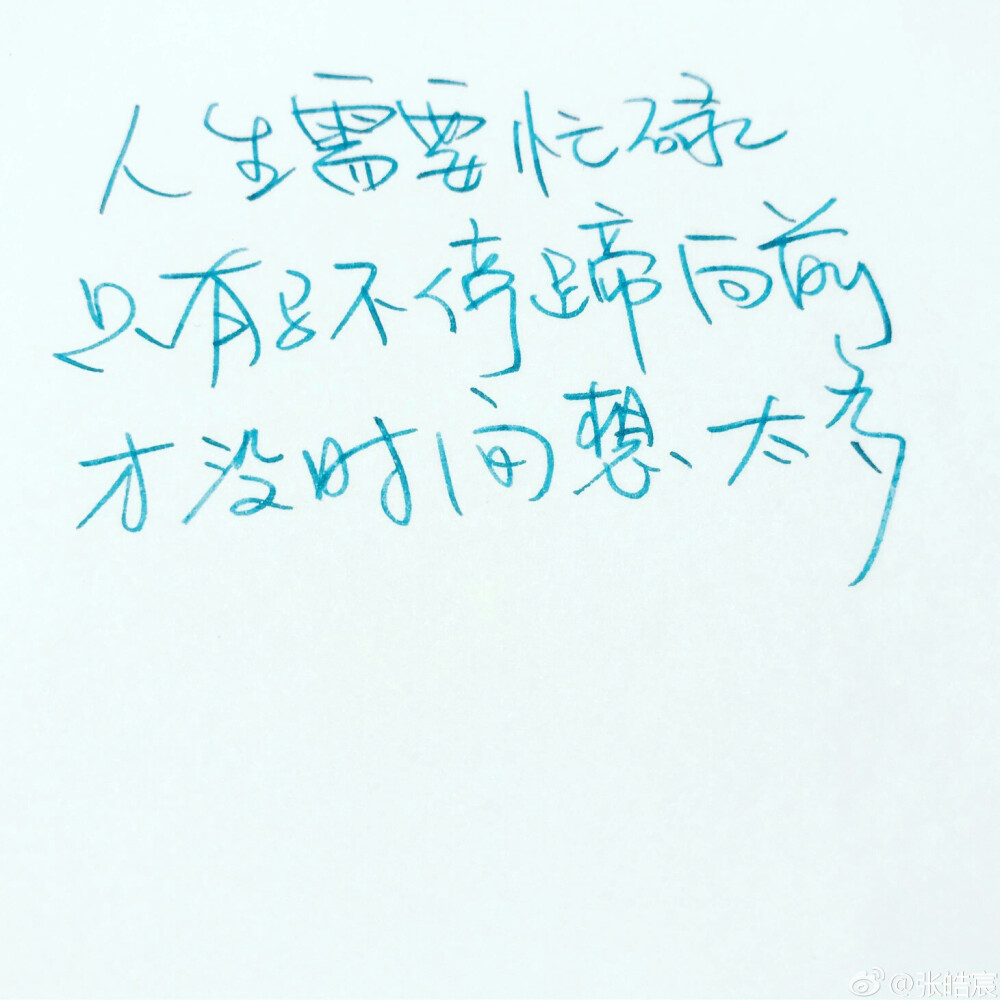 人生需要忙碌
只有马不停蹄向前
才没时间想太多
@张皓宸